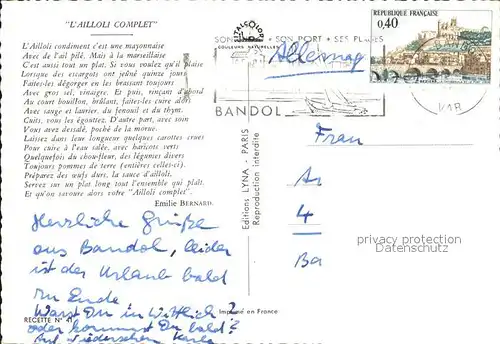 "L'AILLOLI COMPLET"
L'Ailloli condiment c'est une mayonnaise
Avec de l'ail pilé. Mais à la marseillaise
C'est aussi tout un plat. Si vous voulez qu'il plaise
Lorsque des escargots ont gelé quinze jours
Faites-les dégorger en les brassant toujours
Avec gros sel, vinaigre. Et puis, rinçant d'abord
Au court bouillon, brûlant, faites-les cuire alors
Avec sauge et laurier, du fenouil et du thym.
Cuits, vous les égouttez. D'autre part, avec soin
Vous avez dessalé, poché de la morue.
Laissez dans leur longueur quelques carottes crues
Pour cuire à l'eau salée, avec haricots verts
Quelquefois du chou-fleur, des légumes divers
Toujours pommes de terre (entières celles-ci).
Préparez des œufs durs, la sauce d'ailloli.
Servez sur un plat long tout l'ensemble qui plaît.
Et qu'on savoure alors votre "Ailloli complet".
Emilie BERNARD.
Herzliche Grüße
aus Bandol, leider
ist der Urlaub bald
zu Ende
Warst Du in Wittlich?
oder kommst Du bald?
Auf Wiedersehen
RECETTE N° 41
Imprimé en France
Editions LYNA - PARIS
Reproduction interdite
COULEURS NATURELLES
SON PORT • SES PLAGES
BANDOL
Allemag
RÉPUBLIQUE FRANÇAISE
0,40
Frau
4
privacy protection
watermark